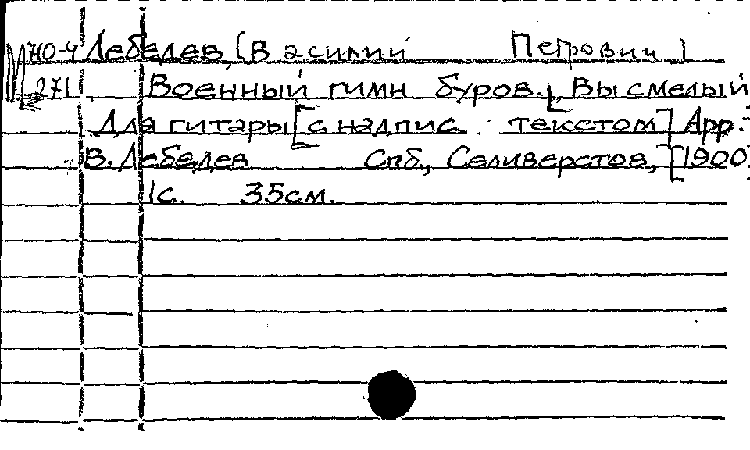 М 40-4 Лебедев, [Василий Петрович]
271 Военный гимн буров. [Вы смелый
Для гитары [с надпис. текстом] Арр.
В. Лебедев Спб., Селиверстов, [1900]
1с. 35см.